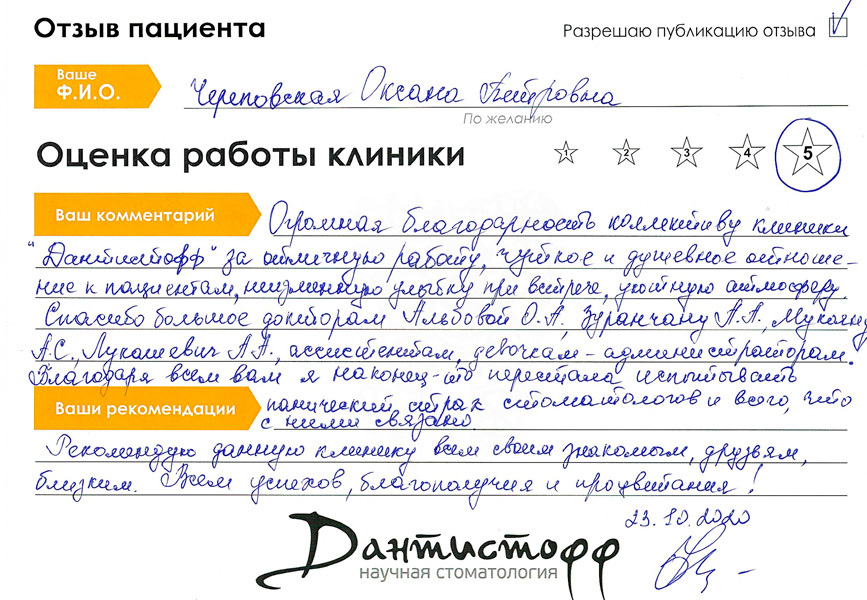 Отзыв пациента
Разрешаю публикацию отзыва
Ваше
Ф.И.О.
Череповская Оксана Петровна
По желанию
Оценка работы клиники
1 2 3 4 5
Ваш комментарий
Огромная благодарность коллективу клиники
"Дантистофф" за отличную работу, чуткое и душевное отноше-
ние к пациентам, неизменную улыбку при встрече, уютную атмосферу.
Спасибо большое докторам Альбовой О.А., Зуранчану А.А.,
А.С., Лукашевич А.А., ассистентам, девочкам-администраторам.
Благодаря всем вам я наконец-то перестала испытывать
Ваши рекомендации
панический страх стоматологов и всего, что
с ними связано.
Рекомендую данную клинику всем своим знакомым, друзьям,
близким. Всем успехов, благополучия и процветания!
23.10.2020
Дантистофф
научная стоматология